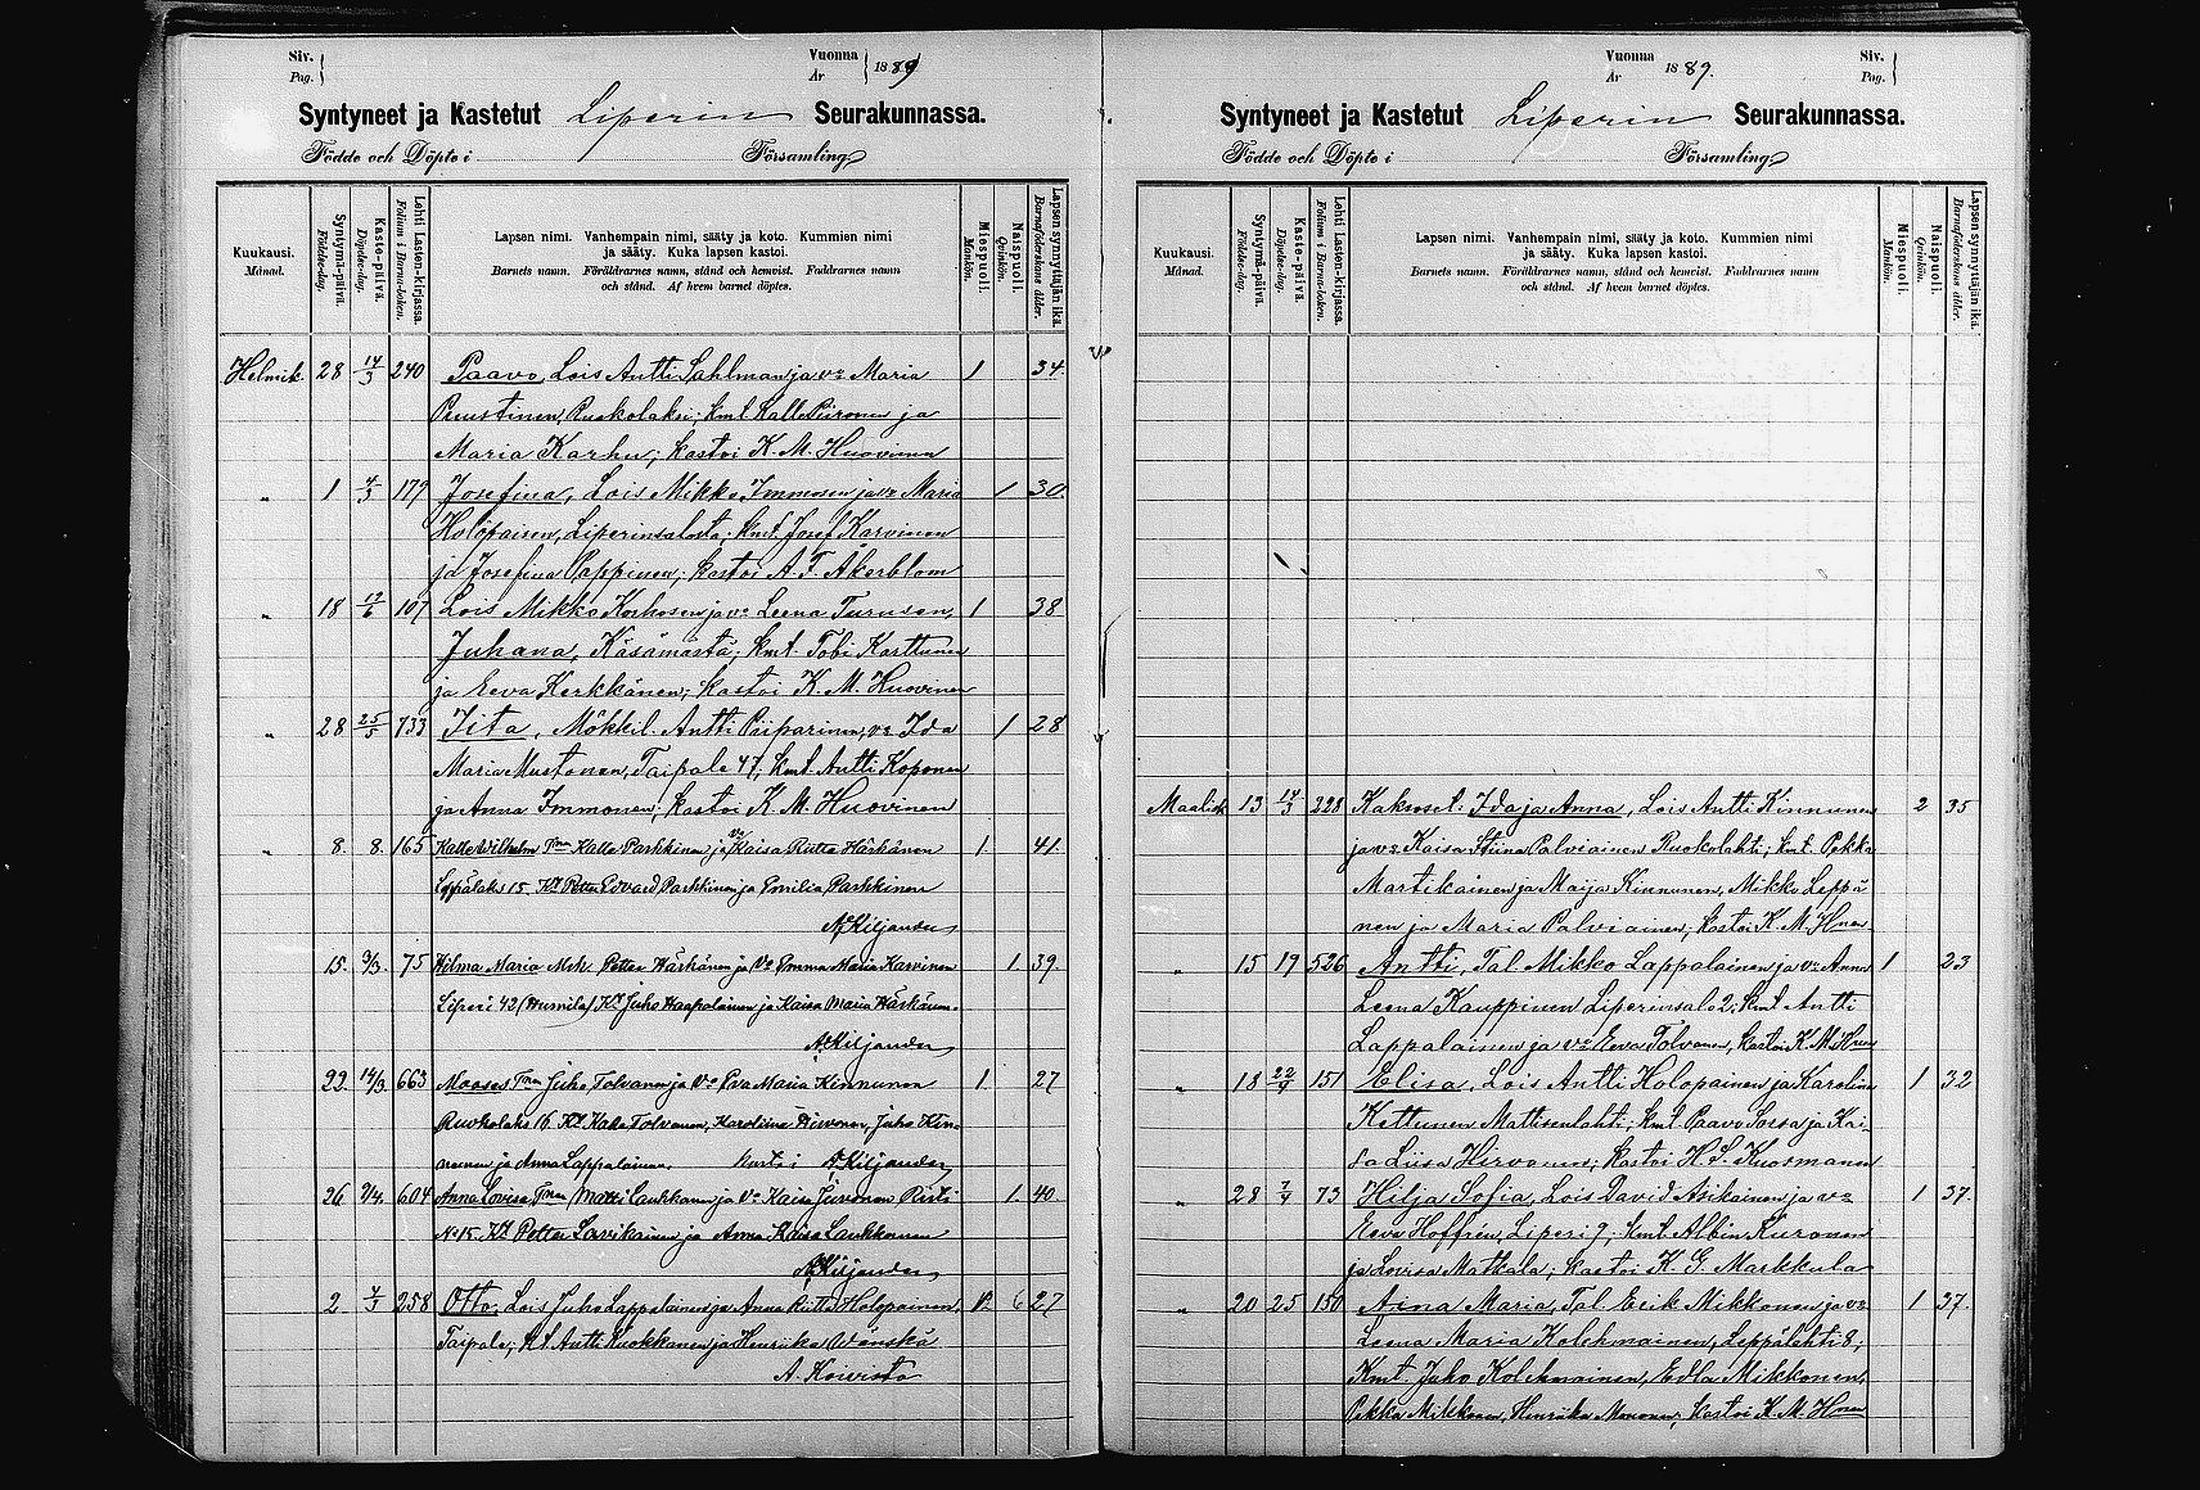 Siv.
Pag.
Vuonna
År
1889
Syntyneet ja Kastetut Liperin Seurakunnassa.
Födde och Döpte i Församling
Kuukausi.
Månad.
Syntymä-päivä.
Födelse-dag.
Kaste-päivä.
Döpelse-dag.
Lehti Lasten-kirjassa.
Folium i Barna-boken.
Lapsen nimi. Vanhempain nimi, sääty ja koto. Kummien nimi
ja sääty. Kuka lapsen kastoi.
Barnets namn. Föräldrarnes namn, stånd och hemvist. Faddrarnes namn
och stånd. Af hvem barnet döptes.
Miespuoli.
Mankön.
Naispuoli.
Qvinkön.
Lapsen synnyttäjän ikä.
Barnaföderskans ålder.
Helmik. 28 14/3 240 Paavo, Lois Antti Sahlman ja vo Maria 1 34.
Puustinen, Ruokolaksi; kmt. Kalle Piironen ja
Maria Karhu; kastoi K. M. Huovinen
" 1 4/3 179 Josefina, Lois Mikko Immosen ja vo Maria 1 30.
Holopaisen, Liperinsalosta; kmt. Josef Karvinen
ja Josefina Pappinen; kastoi A. F. Åkerblom
" 18 12/6 107 Lois Mikko Korhosen ja vo Leena Turusen, 1 38
Juhana, Käsämästä; kmt. Tobi Karttunen
ja Eeva Kerkkänen; kastoi K. M. Huovinen
" 28 25/5 733 Iita, Mökkil. Antti Piiparinen, vo Ida 1 28
Maria Mustonen, Taipale 47; kmt. Antti Koponen
ja Anna Immonen; kastoi K. M. Huovinen
" 8. 8. 165 Kalle Wilhelm Tmn Kalle Parkkinen ja vo Kaisa Riitta Härkänen 1. 41.
Leppälaks 15. Kt Petter Edvard Parkkinen ja Emilia Parkkinen
A. Kiljander
15. 3/3. 75 Hilma Maria Mök Petter Härkänen ja Vo Emma Maria Karvinen 1. 39.
Liperi 42 (Humila) Kt Juho Haapalainen ja Kaisa Maria Härkänen.
A. Kiljander
22. 14/3. 663 Mooses Tmn Juho Tolvanen ja Vo Eva Maria Kinnunen 1. 27
Ruokolaks 16 Kt Kalle Tolvanen, Karoliina Hirvonen, Juho Kin-
nunen ja Anna Lappalainen. kastoi A. Kiljander
26 9/4. 604 Anna Lovisa Tmn Matti Laukkanen ja Vo Kaisa Juvonen Risti 1. 40
No 15. Kt Petter Sarvikainen ja Anna Kaisa Laukkanen
A. Kiljander
2 4/3 258 Otto; Lois Juho Lappalainen ja Anna Riitta Holopainen, 27
Taipale; kt. Antti Kuokkanen ja Henriika Wänskä
A. Koivisto
Vuonna
År
1889.
Siv.
Pag.
Syntyneet ja Kastetut Liperin Seurakunnassa.
Födde och Döpte i Församling
Kuukausi.
Månad.
Syntymä-päivä.
Födelse-dag.
Kaste-päivä.
Döpelse-dag.
Lehti Lasten-kirjassa.
Folium i Barna-boken.
Lapsen nimi. Vanhempain nimi, sääty ja koto. Kummien nimi
ja sääty. Kuka lapsen kastoi.
Barnets namn. Föräldrarnes namn, stånd och hemvist. Faddrarnes namn
och stånd. Af hvem barnet döptes.
Miespuoli.
Mankön.
Naispuoli.
Qvinkön.
Lapsen synnyttäjän ikä.
Barnaföderskans ålder.
Maalisk 13 14/3 228 Kaksoset: Ida ja Anna, Lois Antti Kinnunen 2 35
ja vo Kaisa Stiina Palviainen Ruokolahti; kmt. Pekka
Martikainen ja Maija Kinnunen, Mikko Leppä
nen ja Maria Palviainen; kastoi K. M. Hnen
" 15 19 526 Antti, Tal. Mikko Lappalainen ja vo Anna 1 23
Leena Kauppinen Liperinsalo 2; kmt Antti
Lappalainen ja vo Eeva Tolvanen, kastoi K. M. Hnen
" 18 22/4 151 Elisa, Lois Antti Holopainen ja Karolina 1 32
Kettunen Mattisenlahti; kmt. Paavo Sorsa ja Kai-
sa Liisa Hirvonen; kastoi H. S. Kuosmanen
" 28 7/4 73 Hilja Sofia, Lois David Asikainen ja vo 1 37.
Eeva Hoffrén, Liperi 9; kmt Albin Kuronen
ja Lovisa Matkala; kastoi K. G. Markkula
" 20 25 150 Aina Maria, Tal. Erik Mikkonen ja vo 1 37.
Leena Maria Kolehmainen, Leppälahti 8;
Kmt. Juho Kolehmainen, Edla Mikkonen,
Pekka Mikkonen, Henriika Mononen; kastoi K. M. Hnen